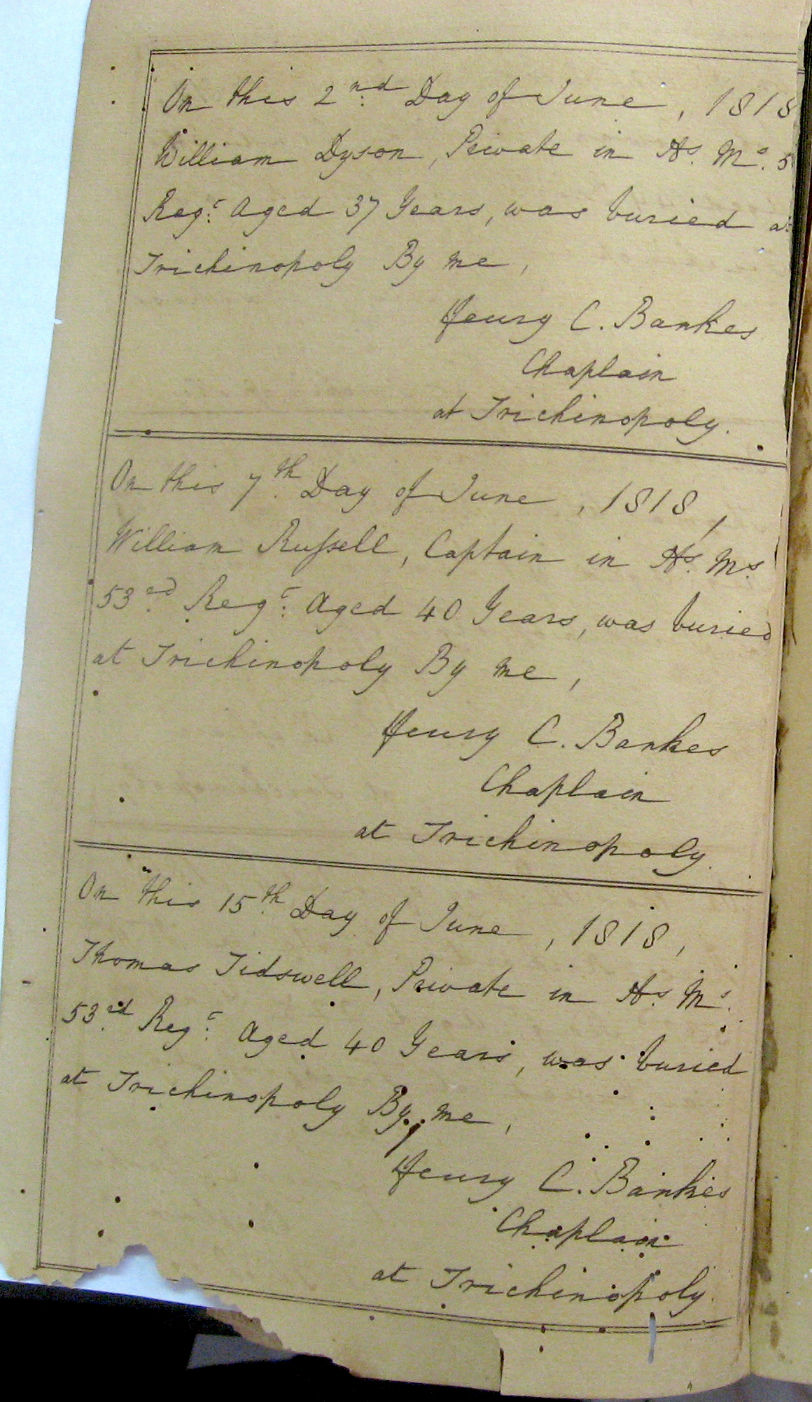 On this 2nd Day of June, 1818
William Dyson, Private in Hs. Ms. 5
Regt. Aged 37 Years, was buried at
Trichinopoly By me,
Henry C. Bankes
Chaplain
at Trichinopoly.
On this 7th Day of June, 1818,
William Rufsell, Captain in Hs. Ms.
53rd Regt. Aged 40 Years, was buried
at Trichinopoly By me,
Henry C. Bankes
Chaplain
at Trichinopoly.
On this 15th Day of June, 1818,
Thomas Tidswell, Private in Hs. Ms.
53rd Regt. Aged 40 Years, was buried
at Trichinopoly By me,
Henry C. Bankes
Chaplain
at Trichinopoly.